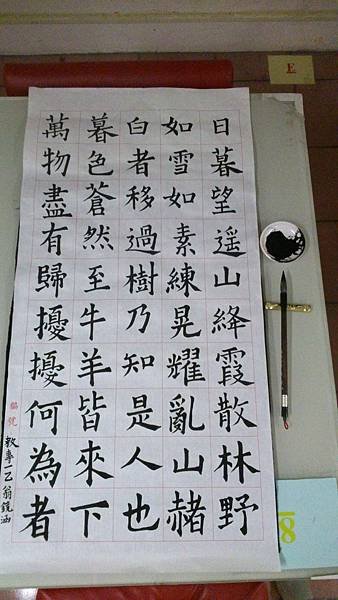 日暮望遙山絳霞散林野
如雪如素練晃耀亂山赭
白者移過樹乃知是人也
暮色蒼然至牛羊皆來下
萬物盡有歸擾擾何為者
編號
一乙翁鏡涵
E